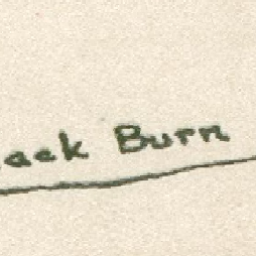 ack Burn